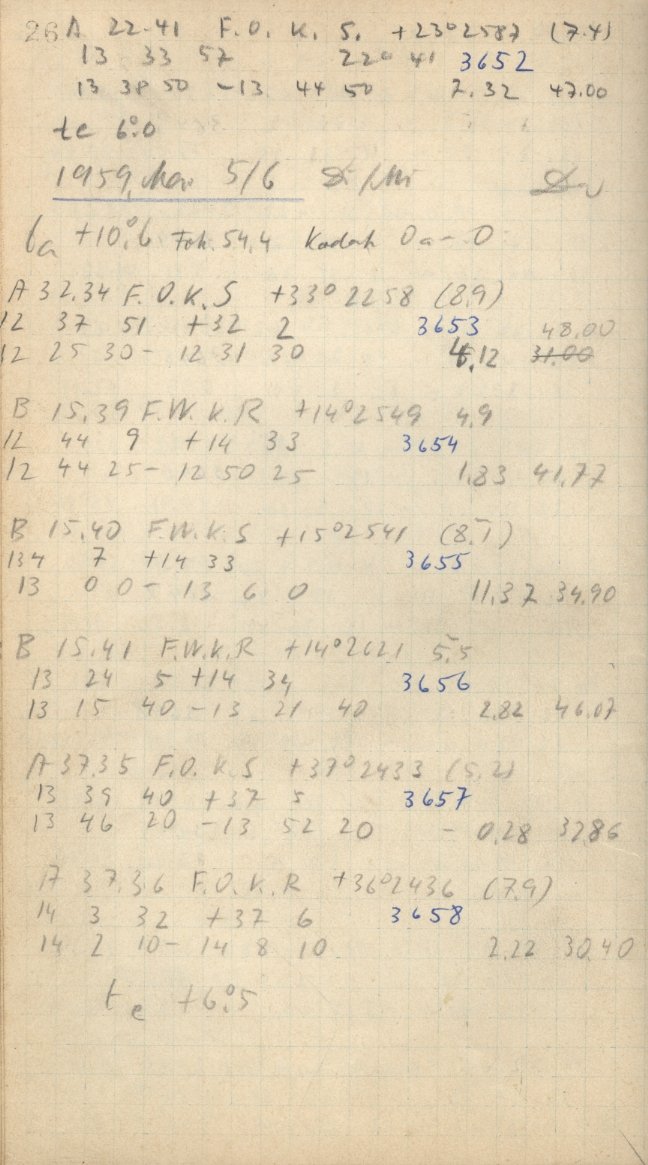 26 A 22.41 F.O. K. S. +23°2587 (7.4)
13 33 57 22° 41 3652
13 38 50 - 13 44 50 7.32 47.00
te 6°.0
1959, 5/6
ta +10°.6 Foh. 54,4 Kodak Oa-O
A 32.34 F.O.K.S +33°2258 (8.9)
12 37 51 +32 2 3653 48.00
12 25 30 - 12 31 30 4,12 31.00
B 15.39 F.W.K.R +14°2549 4.9
12 44 9 +14 33 3654
12 44 25 - 12 50 25 1.83 41.77
B 15.40 F.W.K.S +15°2541 (8.1)
134 7 +14 33 3655
13 0 0 - 13 6 0 11.37 34.90
B 15.41 F.W.K.R +14°2621 5.5
13 24 5 +14 34 3656
13 15 40 - 13 21 40 2.82 46.07
A 37.35 F.O.K.S +37°2433 (5.2)
13 39 40 +37 5 3657
13 46 20 - 13 52 20 - 0.28 32.86
A 37.36 F.O.K.R +36°2436 (7.9)
14 3 32 +37 6 3658
14 2 10 - 14 8 10 2.22 30.40
te +6°.5